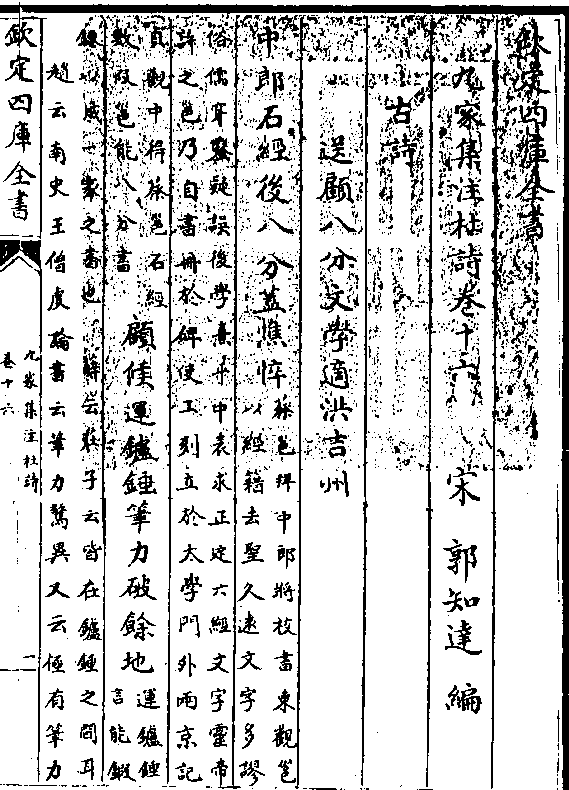 欽定四庫全書
九家集注杜詩卷十六　宋　郭知達　編
古詩
送顧八分文學適洪吉州
中郎石經後八分蓋憔悴
蔡邕拜中郎將校書東觀邕
以經籍去聖久逺文字多謬
俗儒穿鑿疑誤後學熹平中表求正定六經文字靈帝
許之邕乃自書冊於碑使工刻立於太學門外兩京記
貞觀中得蔡邕石經
數段邕能八分書
顧侯運鑪錘筆力破餘地
運鑪錘
言能鍜
錬以成一家之書也
莊子云皆在鑪錘之間耳
趙云南史王僧虔論書云筆力驚異又云極有筆力
欽定四庫全書
九家集注杜詩
卷十六
一